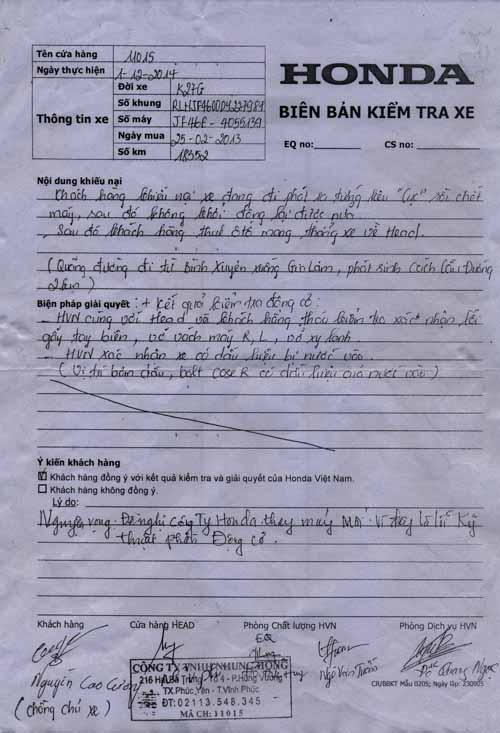 Tên cửa hàng 11015
Ngày thực hiện 1-12-2014
HONDA
Thông tin xe
Đời xe K27G
Số khung
Số máy JF46E-4055139
Ngày mua 25-02-2013
Số km 18352
BIÊN BẢN KIỂM TRA XE
EQ no: CS no:
Nội dung khiếu nại
Khách hàng khiếu nại xe đang đi phát ra tiếng kêu "Cục" rồi chết
máy, sau đó không khởi động lại được nữa
Sau đó khách hàng thuê ôtô mang thẳng xe về Head.
(Quãng đường đi từ Bình Xuyên xuống Gia Lâm, phát sinh cách Cầu Đuống
2km)
Biện pháp giải quyết: + Kết quả kiểm tra động cơ:
- HVN cùng với Head và khách hàng tháo kiểm tra xác nhận lỗi
gãy tay biên, vỡ vách máy R, L, vỡ xy lanh
- HVN xác nhận xe có dấu hiệu bị nước vào.
(Vị trí bàn chầu, bolt case R có dấu hiệu của nước vào)
Ý kiến khách hàng
Khách hàng đồng ý với kết quả kiểm tra và giải quyết của Honda Việt Nam.
Khách hàng không đồng ý.
Lý do:
Nguyện vọng. Đề nghị công Ty Honda thay máy Mới. Vì đây là lỗi Kỹ
thuật phần Động cơ.
Khách hàng Cửa hàng HEAD Phòng Chất lượng HVN Phòng Dịch vụ HVN
EQ
Nguyễn Cao Cường
(chồng chủ xe)
Ngô Văn Tuấn
Đỗ Quang Ngọc
CÔNG TY TNHH HÙNG HỒNG
216 Hai Bà Trưng - Tổ 4 - P.Hùng Vương
TX.Phúc Yên - T.Vĩnh Phúc
ĐT: 02113.548.345
MÃ CH: 11015
CR/BBKT Mẫu 0205; Ngày lập: 230905